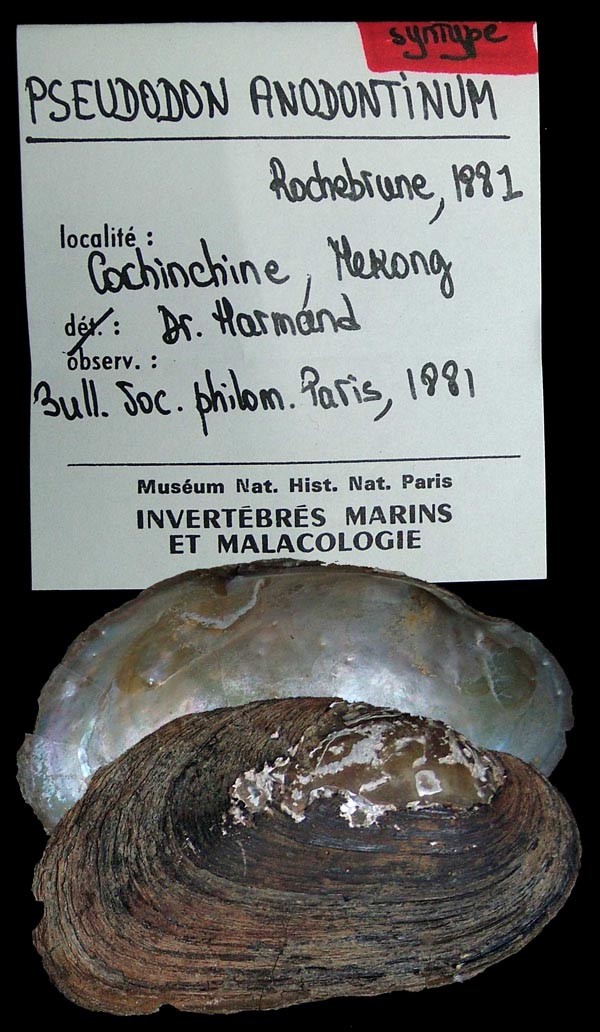 syntype
PSEUDODON ANODONTINUM
Rochebrune, 1881
localité :
Cochinchine, Mekong
dét. : Dr. Harmand
observ. :
Bull. Soc. philom. Paris, 1881
Muséum Nat. Hist. Nat. Paris
INVERTÉBRÉS MARINS
ET MALACOLOGIE